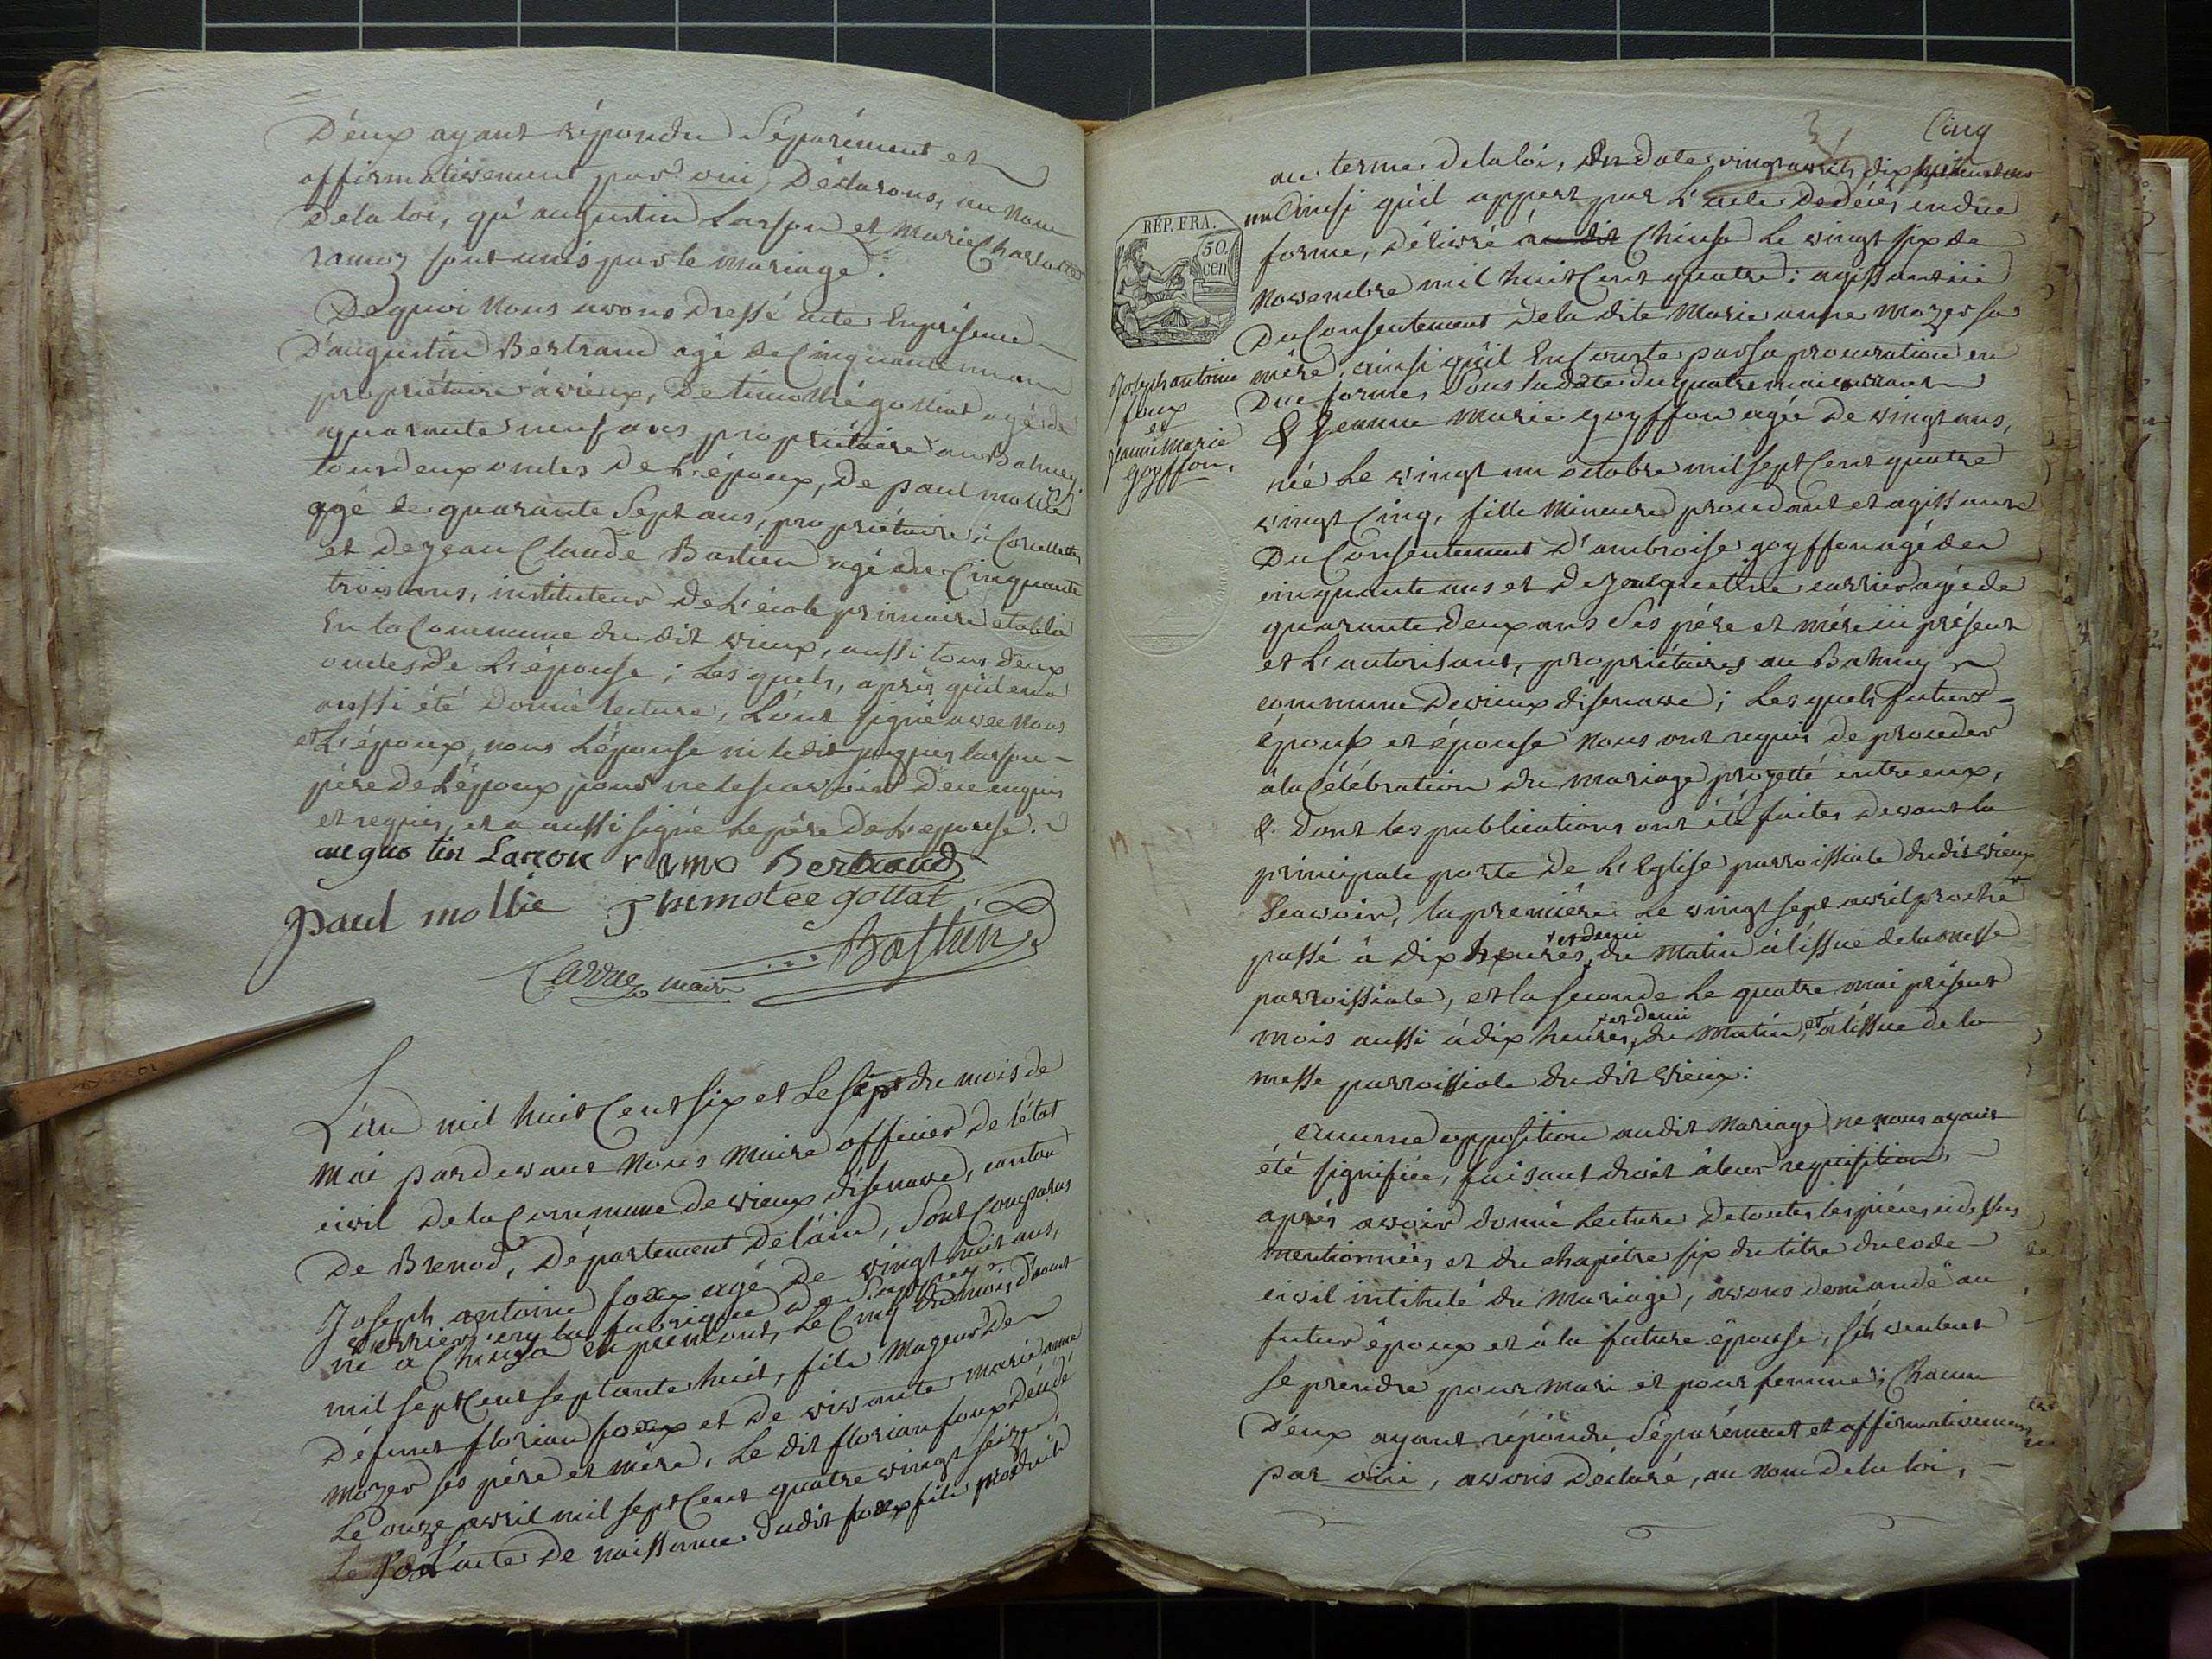 D'eux ayant répondu Séparément et
affirmativement par oui, Déclarons, au Nom
De la loi, qu'augustin Larson et Marie Charlotte
ramoz sont unis par le mariage.
De quoi Nous avons Dressé acte En présence
D'augustin Bertrand agé de Cinquante un an
propriétaire à vieux, De timothé gollat agé de
quarante neuf ans propriétaire au Bahuey
tous deux oncles De L'époux, De paul mollie
agé de quarante Sept ans, propriétaire à Corcellette
et de jean Claude Bastien agé de Cinquante
trois ans, instituteur de L'école primaire établie
En la Commune du dit vieux, aussi tous deux
oncles De L'épouse ; Les quels, après qu'il en a
aussi été Donné lecture, L'ont signé avec nous
et L'époux, nous L'épouse ni le dit larson
père de L'époux pour ne le sçavoir De ce enquis
et requis, et a aussi signé Le père De L'épouse.
augus tin Larcon ramo Bertrand
paul mollie Thimotee gollat
Bastien
Carrae maire
L'an mil huit Cent six et Le sept du mois de
Mai pardevant Nous Maire officier de l'état
civil De la Commune de vieux d'isenave, canton
De Brenod, Département De l'ain, Sont Comparus
Joseph antoine foux agé De vingt huit ans,
ouvrier en la fabrique de
né à Chiusa En piemont, Le Cinq du mois d'aout
mil sept Cent septante huit, fils Majeur De
Défunt florian foux et De vivante Marie anne
Mozer ses père et mère, Le dit florian foux Décédé
Le onze avril mil sept Cent quatre vingt seize,
L'acte De naissance du dit foux fils produit
31 Cinq
au terme De la loi, En date vingt avril dix huit cent
un Ainsi qu'il appert par L'acte De décès en due
forme, Délivré au dit Chiusa Le vingt six de
Novembre mil huit Cent quatre : agissant ici
Du Consentement De la dite Marie anne Mozer sa
mère, ainsi qu'il En Conste par sa procuration en
Due forme, Sous la date du quatre mai courant
& Jeanne Marie goyffon agée De vingt ans,
née Le vingt un octobre mil sept Cent quatre
vingt Cinq, fille Mineure procédant et agissant
Du Consentement D'ambroise goyffon agé de
cinquante ans et De Jacqueline carrier agée de
quarante Deux ans Ses père et mère ici présent
et L'autorisant, propriétaires au Bahuey
commune De vieux d'isenave ; Les quels futurs
époux et épouse Nous ont requis de procéder
à la Célébration du mariage projetté entre eux,
& Dont les publications ont été faites Devant la
principale porte De L'Eglise parroissiale du dit vieux
Scavoir, la première Le vingt sept avril proche
passé à Dix heures et demi du Matin à l'issue de la messe
parroissiale, et la seconde Le quatre mai présent
mois aussi à dix heures et demi du Matin, et à l'issue de la
messe parroissiale du dit vieux :
Aucune opposition au dit Mariage ne nous ayant
été signifiée, faisant droit à leur requisition,
après avoir donné Lecture De toutes les pièces ci dessus
mentionnées et du chapitre six du titre du code
civil intitulé du Mariage, avons demandé au
futur époux et à la future épouse, s'ils veulent
se prendre pour Mari et pour femme ; Chacun
D'eux ayant répondu Séparément et affirmativement
par oui, avons Déclaré, au Nom De la loi,
RÉP. FRA.
50.
cen
Joseph antoine
foux
et
jeanne Marie
goyffon.